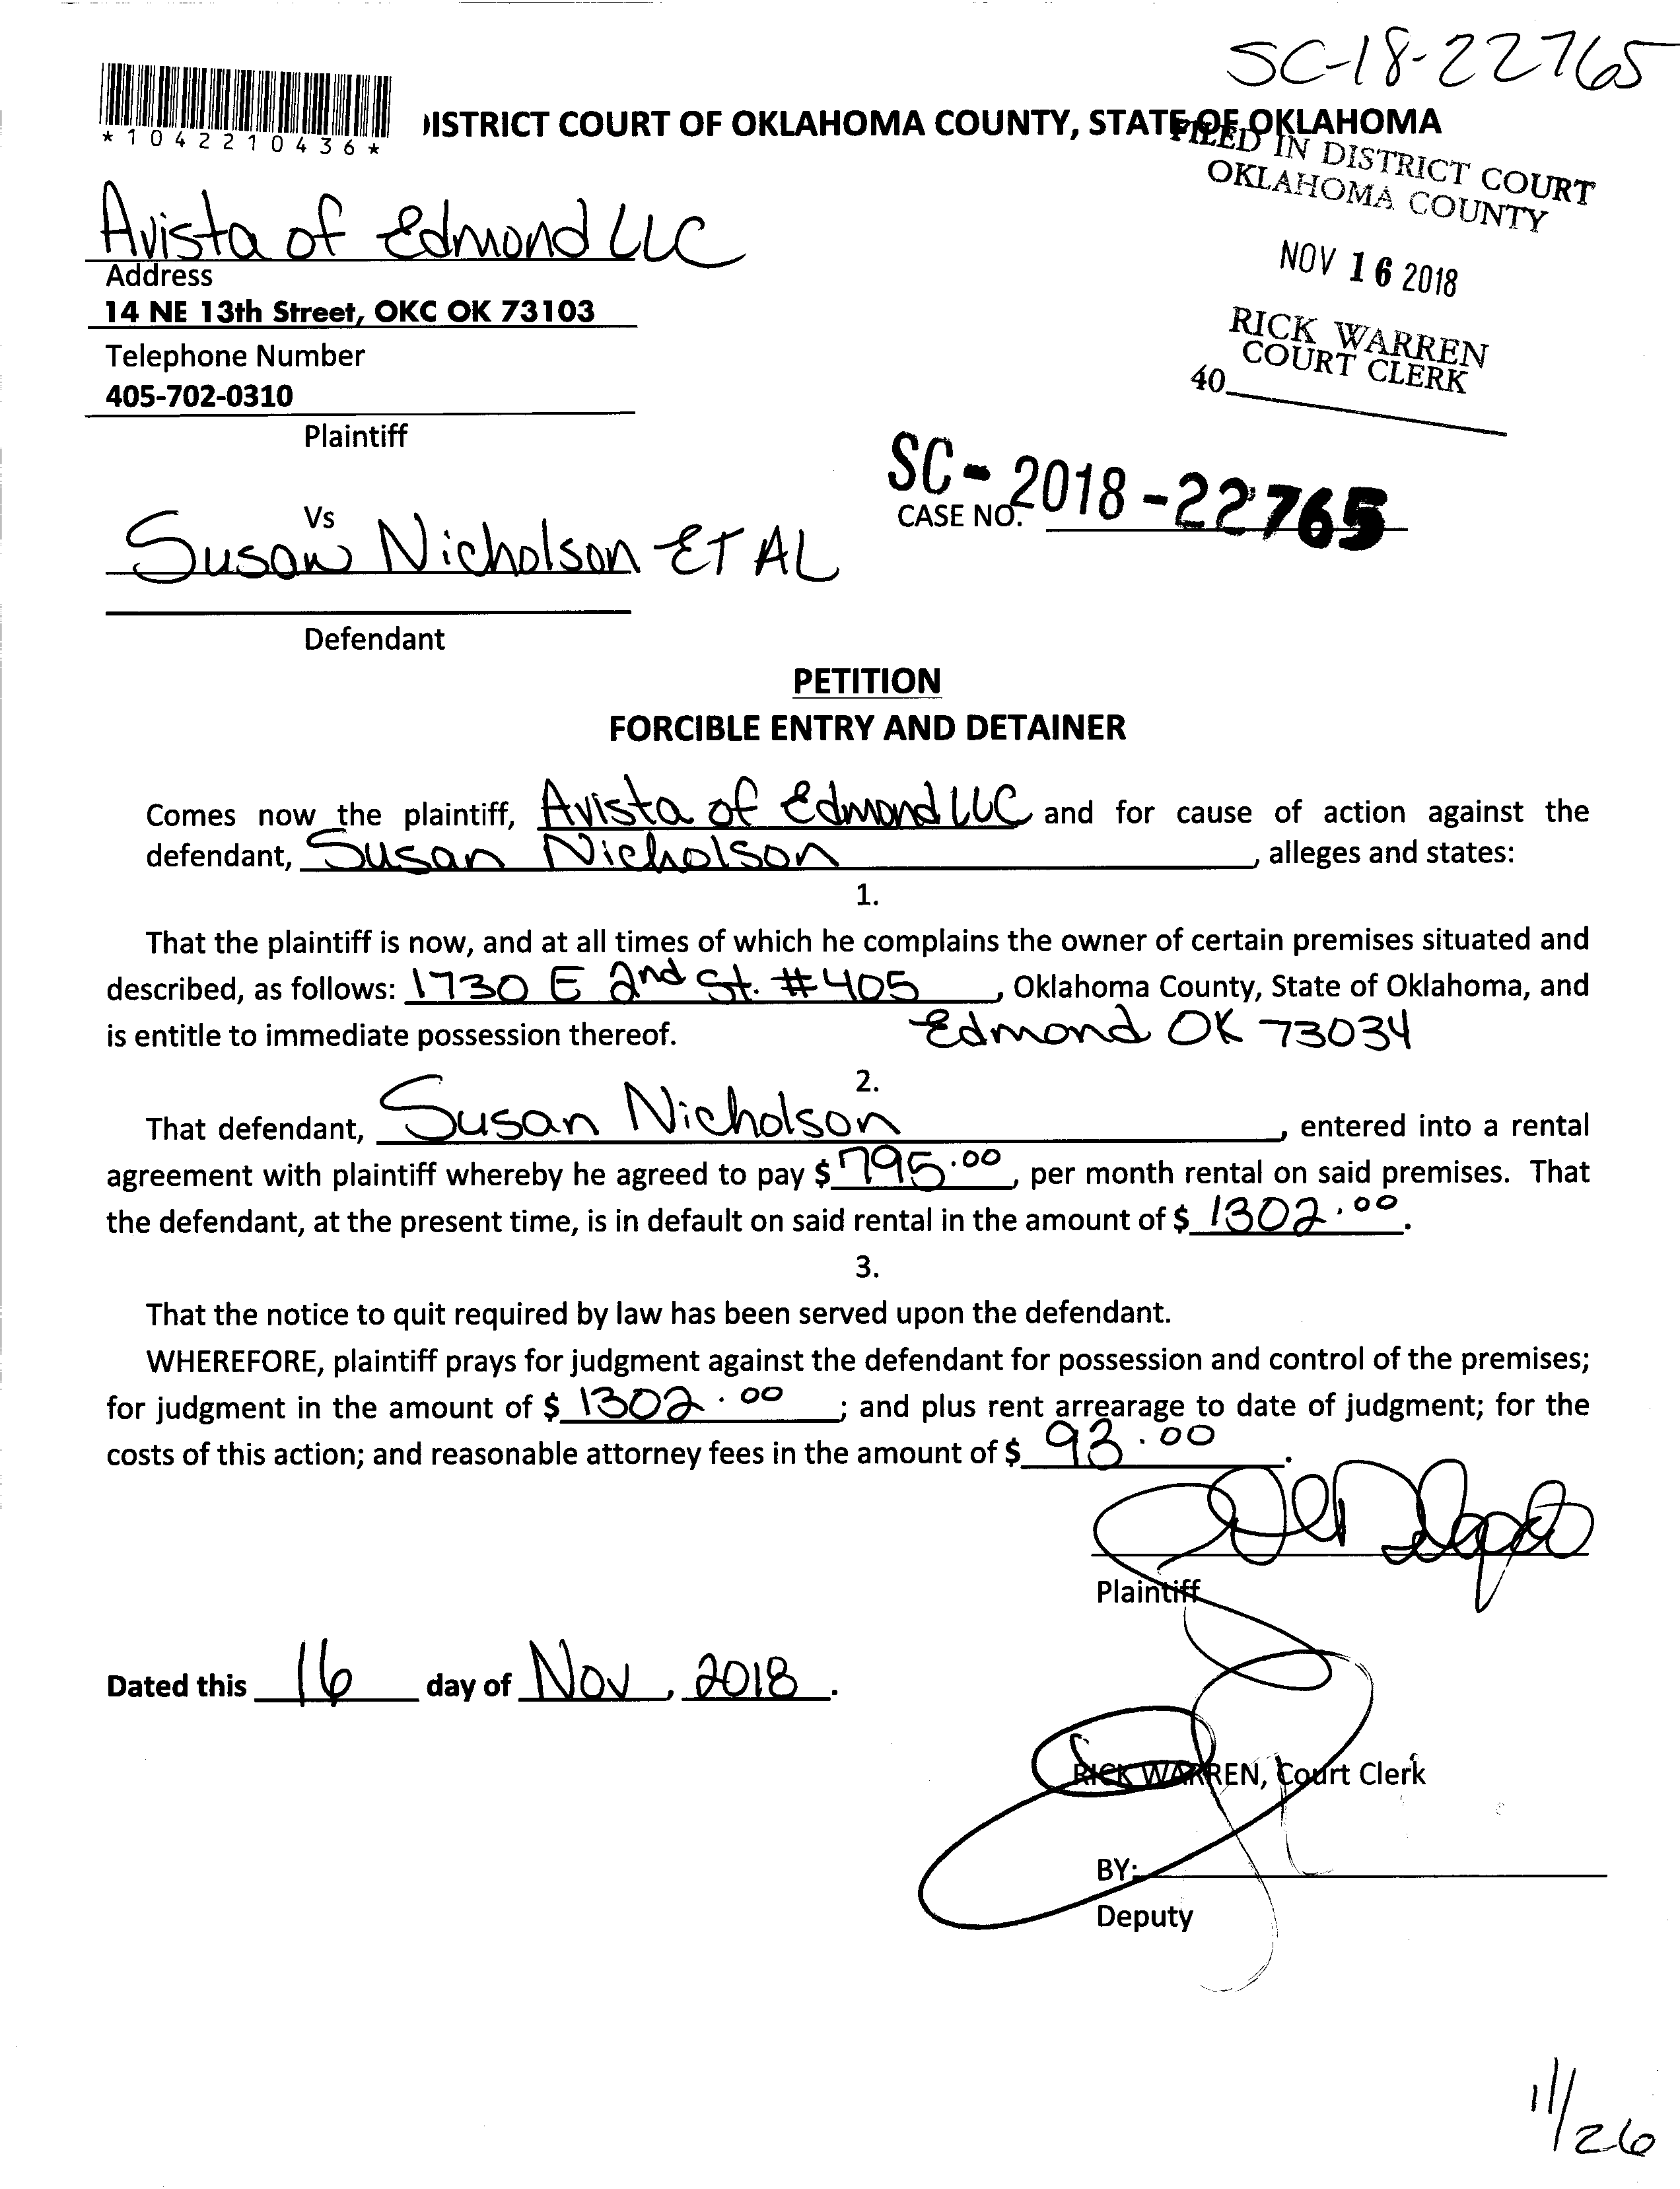 SC-18-22765
*1042210436*
DISTRICT COURT OF OKLAHOMA COUNTY, STATE OF OKLAHOMA
FILED IN DISTRICT COURT
OKLAHOMA COUNTY
Avista of Edmond LLC
Address
14 NE 13th Street, OKC OK 73103
NOV 16 2018
Telephone Number
405-702-0310
RICK WARREN
COURT CLERK
40
Plaintiff
SC-2018-22765
CASE NO.
Vs
Susan Nicholson ET AL
Defendant
PETITION
FORCIBLE ENTRY AND DETAINER
Comes now the plaintiff, Avista of Edmond LLC and for cause of action against the
defendant, Susan Nicholson, alleges and states:
1.
That the plaintiff is now, and at all times of which he complains the owner of certain premises situated and
described, as follows: 1730 E 2nd St. #405, Oklahoma County, State of Oklahoma, and
is entitle to immediate possession thereof. Edmond OK 73034
2.
That defendant, Susan Nicholson, entered into a rental
agreement with plaintiff whereby he agreed to pay $795.00, per month rental on said premises. That
the defendant, at the present time, is in default on said rental in the amount of $1302.00.
3.
That the notice to quit required by law has been served upon the defendant.
WHEREFORE, plaintiff prays for judgment against the defendant for possession and control of the premises;
for judgment in the amount of $1302.00; and plus rent arrearage to date of judgment; for the
costs of this action; and reasonable attorney fees in the amount of $93.00.
Plaintiff
Dated this 16 day of Nov, 2018.
RICK WARREN, Court Clerk
BY:
Deputy
11/26